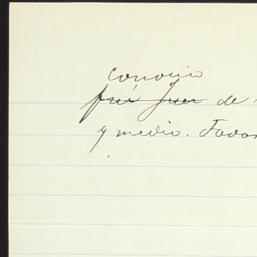 conocio
fué Juez de
y medio. Todos